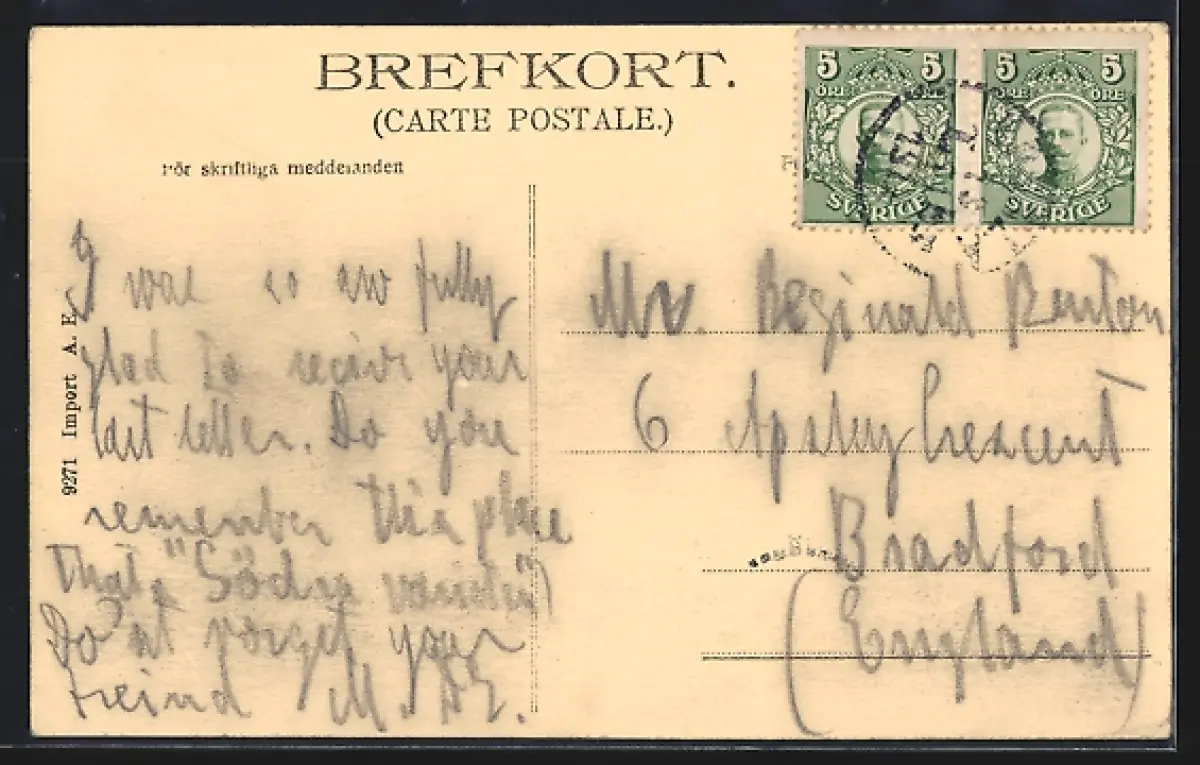 BREFKORT.
(CARTE POSTALE.)
För skriftliga meddelanden
5 5
ÖRE ÖRE
SVERIGE
5 5
ÖRE ÖRE
SVERIGE
9271 Import A. E.
I was so aw fully
glad to receive your
last letter. Do you
remember this place
that "Södra
Do'nt vorget your
freind M.
Mr. Reginald Renton
6 Apsley Crescent
Bradford
(England)